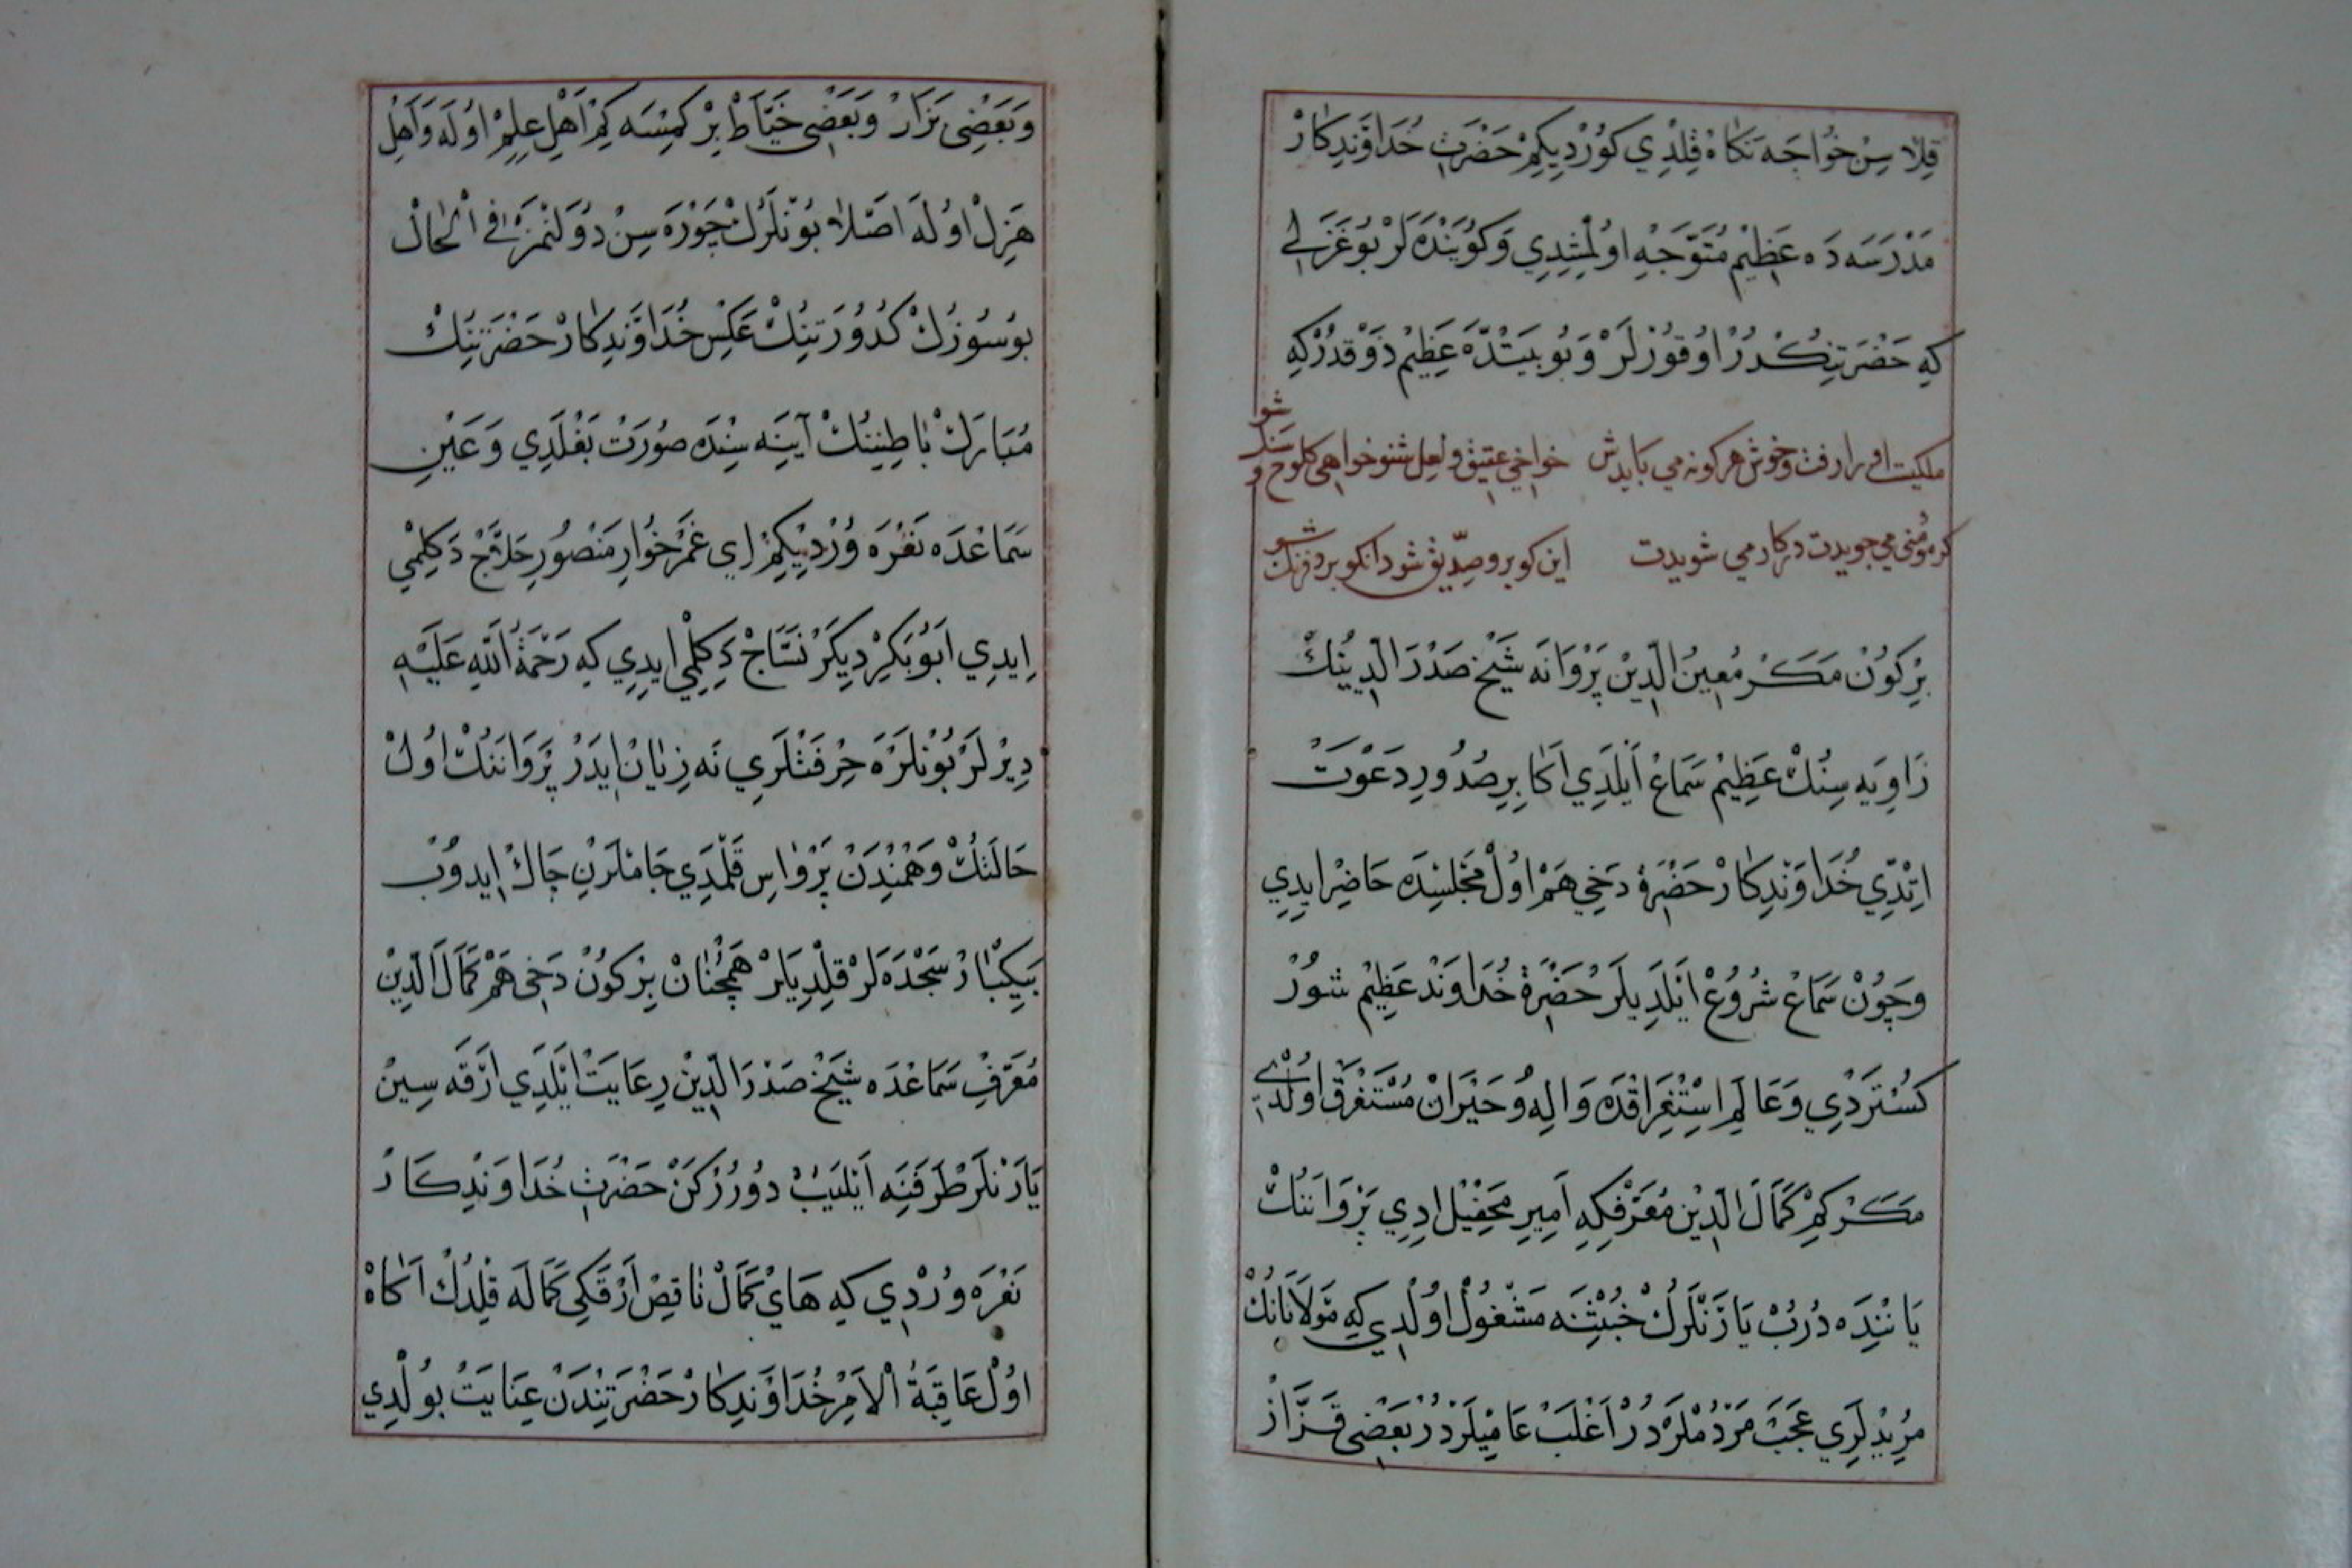 قِلاَسِنْ خُواجَه نَكَاهْ قِلْدِي كُورْدِيكِمْ حَضْرَتِ خُدَاوَنْدِكَارْ
مَدْرَسَه دَه عَظِيمْ مُتَوَجِّهِ اوُلْمُشِدِي وَكُويَنْدَه لَرْ بُو غَزَلِي
كِه حَضْرَتِنِكْدُرْ اوُقُورْلَرْ وَبُو بَيْتْدَه عَظِيمْ ذَوْقْدُرْكِه
ملكيت اورا رفت وخوش هركونه مي بايدش خواخي عتيق ولعل شو خواهي كلوخ و سنك شو
كر مومني مي جويدت دركار مي شويدت اين كو برو صدّيق شو دانكو برو فرنك شو
بِرْ كُونْ مَكَرْ مُعِينُ الدِّينْ پَرْوَانَه شَيْخْ صَدْرَ الدِّينُكْ
زَاوِيَه سِنْكْ عَظِيمْ سَمَاعْ اَيْلَدِي اَكَابِرِ صُدُورِ دَعْوَتْ
اِتْدِي خُدَاوَنْدِكَارْ حَضْرَتِ دَخِي هَمْ اوُلْ مَجْلِسْدَه حَاضِرْ ايدِي
وَچُونْ سَمَاعْ شُرُوعْ اَيْلَدِيلَرْ حَضْرَةِ خُدَاوَنْدْ عَظِيمْ شُورْ
كُسْتَرْدِي وَعَالَمِ اِسْتِغْرَاقْدَه وَالِهُ وحَيْرَانْ مُسْتَغْرَقْ اوُلْدِي
مَكَرْ كِمْ كَمَالَ الدِّينْ مُعَرِّفْكِه اَمِيرِ مَحْفِلْ ادِي پَرْوَانَنُكْ
يَانِنْدَه دُرُبْ يَارَنْلَرُكْ خُبْثِنَه مَشْغُولْ اوُلْدِي كِه مَوْلاَنَانُكْ
مُرِيدْلَرِي عَجَبْ مَرْدُمْلَرْدُرْ اَغْلَبْ عَامِيلَرْدُرْ بَعْضِي قَزَّازْ
وَبَعْضِى بَزَّازْ وَبَعْضِى خَيَّاطْ بِرْ كِمْسَه كِمْ اَهْلِ عِلِمْ اوُلَه وَاَهْلِ
هَزِلْ اوُلَه اَصْلاَ بُونْلَرُكْ چَوْرَه سِنْ دُولَنْمَزْ فِي الْحَالْ
بُو سُوزُكْ كُدُورَتِنُكْ عَكْسِ خُدَاوَنْدِكَارْ حَضْرَتِنُكْ
مُبَارَكْ بَاطِنِنُكْ آيِنَه سِنْدَه صُورَتْ بَغْلَدِي وَعَيْنِ
سَمَاعْدَه نَعْرَه وُرْدِيكِمْ اِي غَمْزْخُوارِ مَنْصُورِ حَلاَّجْ دَكِلْمِي
اِيدِي اَبُو بَكِرْ دِيكَرْ نَسَّاجْ دَكِلْمِي ايدِي كِه رَحْمَةُ اللّهِ عَلَيْهِ
دِيرْلَرْ بُونْلَرَه حِرْفَتْلَرِي نَه زِيَانْ ايدَرْ پَرْوَانَنُكْ اوُلْ
حَالَتْكْ وَهْمِنْدَنْ پَرْوَاسِ قَلْمَدِي جَامَلَرِنْ چَاكْ ايدُوبْ
بَيِكْبَارْ سَجْدَه لَرْ قِلْدِيلَرْ هَمْچُنَانْ بِرْ كُونْ دَخِى هَمْ كَمَالَ الدِّينْ
مُعَرِّفِ سَمَاعْدَه شَيْخْ صَدْرَ الدِّينْ رِعَايَتْ اَيْلَدِي اَرْقَه سِينْ
يَارَنْلَرْ طَرَفِنَه اَيْلَيَبْ دُورُرْكَنْ حَضْرَتِ خُدَاوَنْدِكَارْ
نَعْرَه وُرْدِي كِه هَايْ كَمَالْ نَاقِصْ اَرْقَكِي كَمَالَه قِلْدُكْ اَكَاهْ
اوُلْ عَاقِبَةُ الْاَمِرْ خُدَاوَنْدِكَارْ حَضْرَتِنْدَنْ عِنَايَتْ بُولْدِي